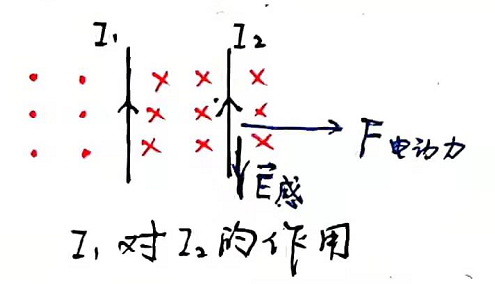 I₁ I₂
F电动力
E⃗感
I₁对I₂的作用